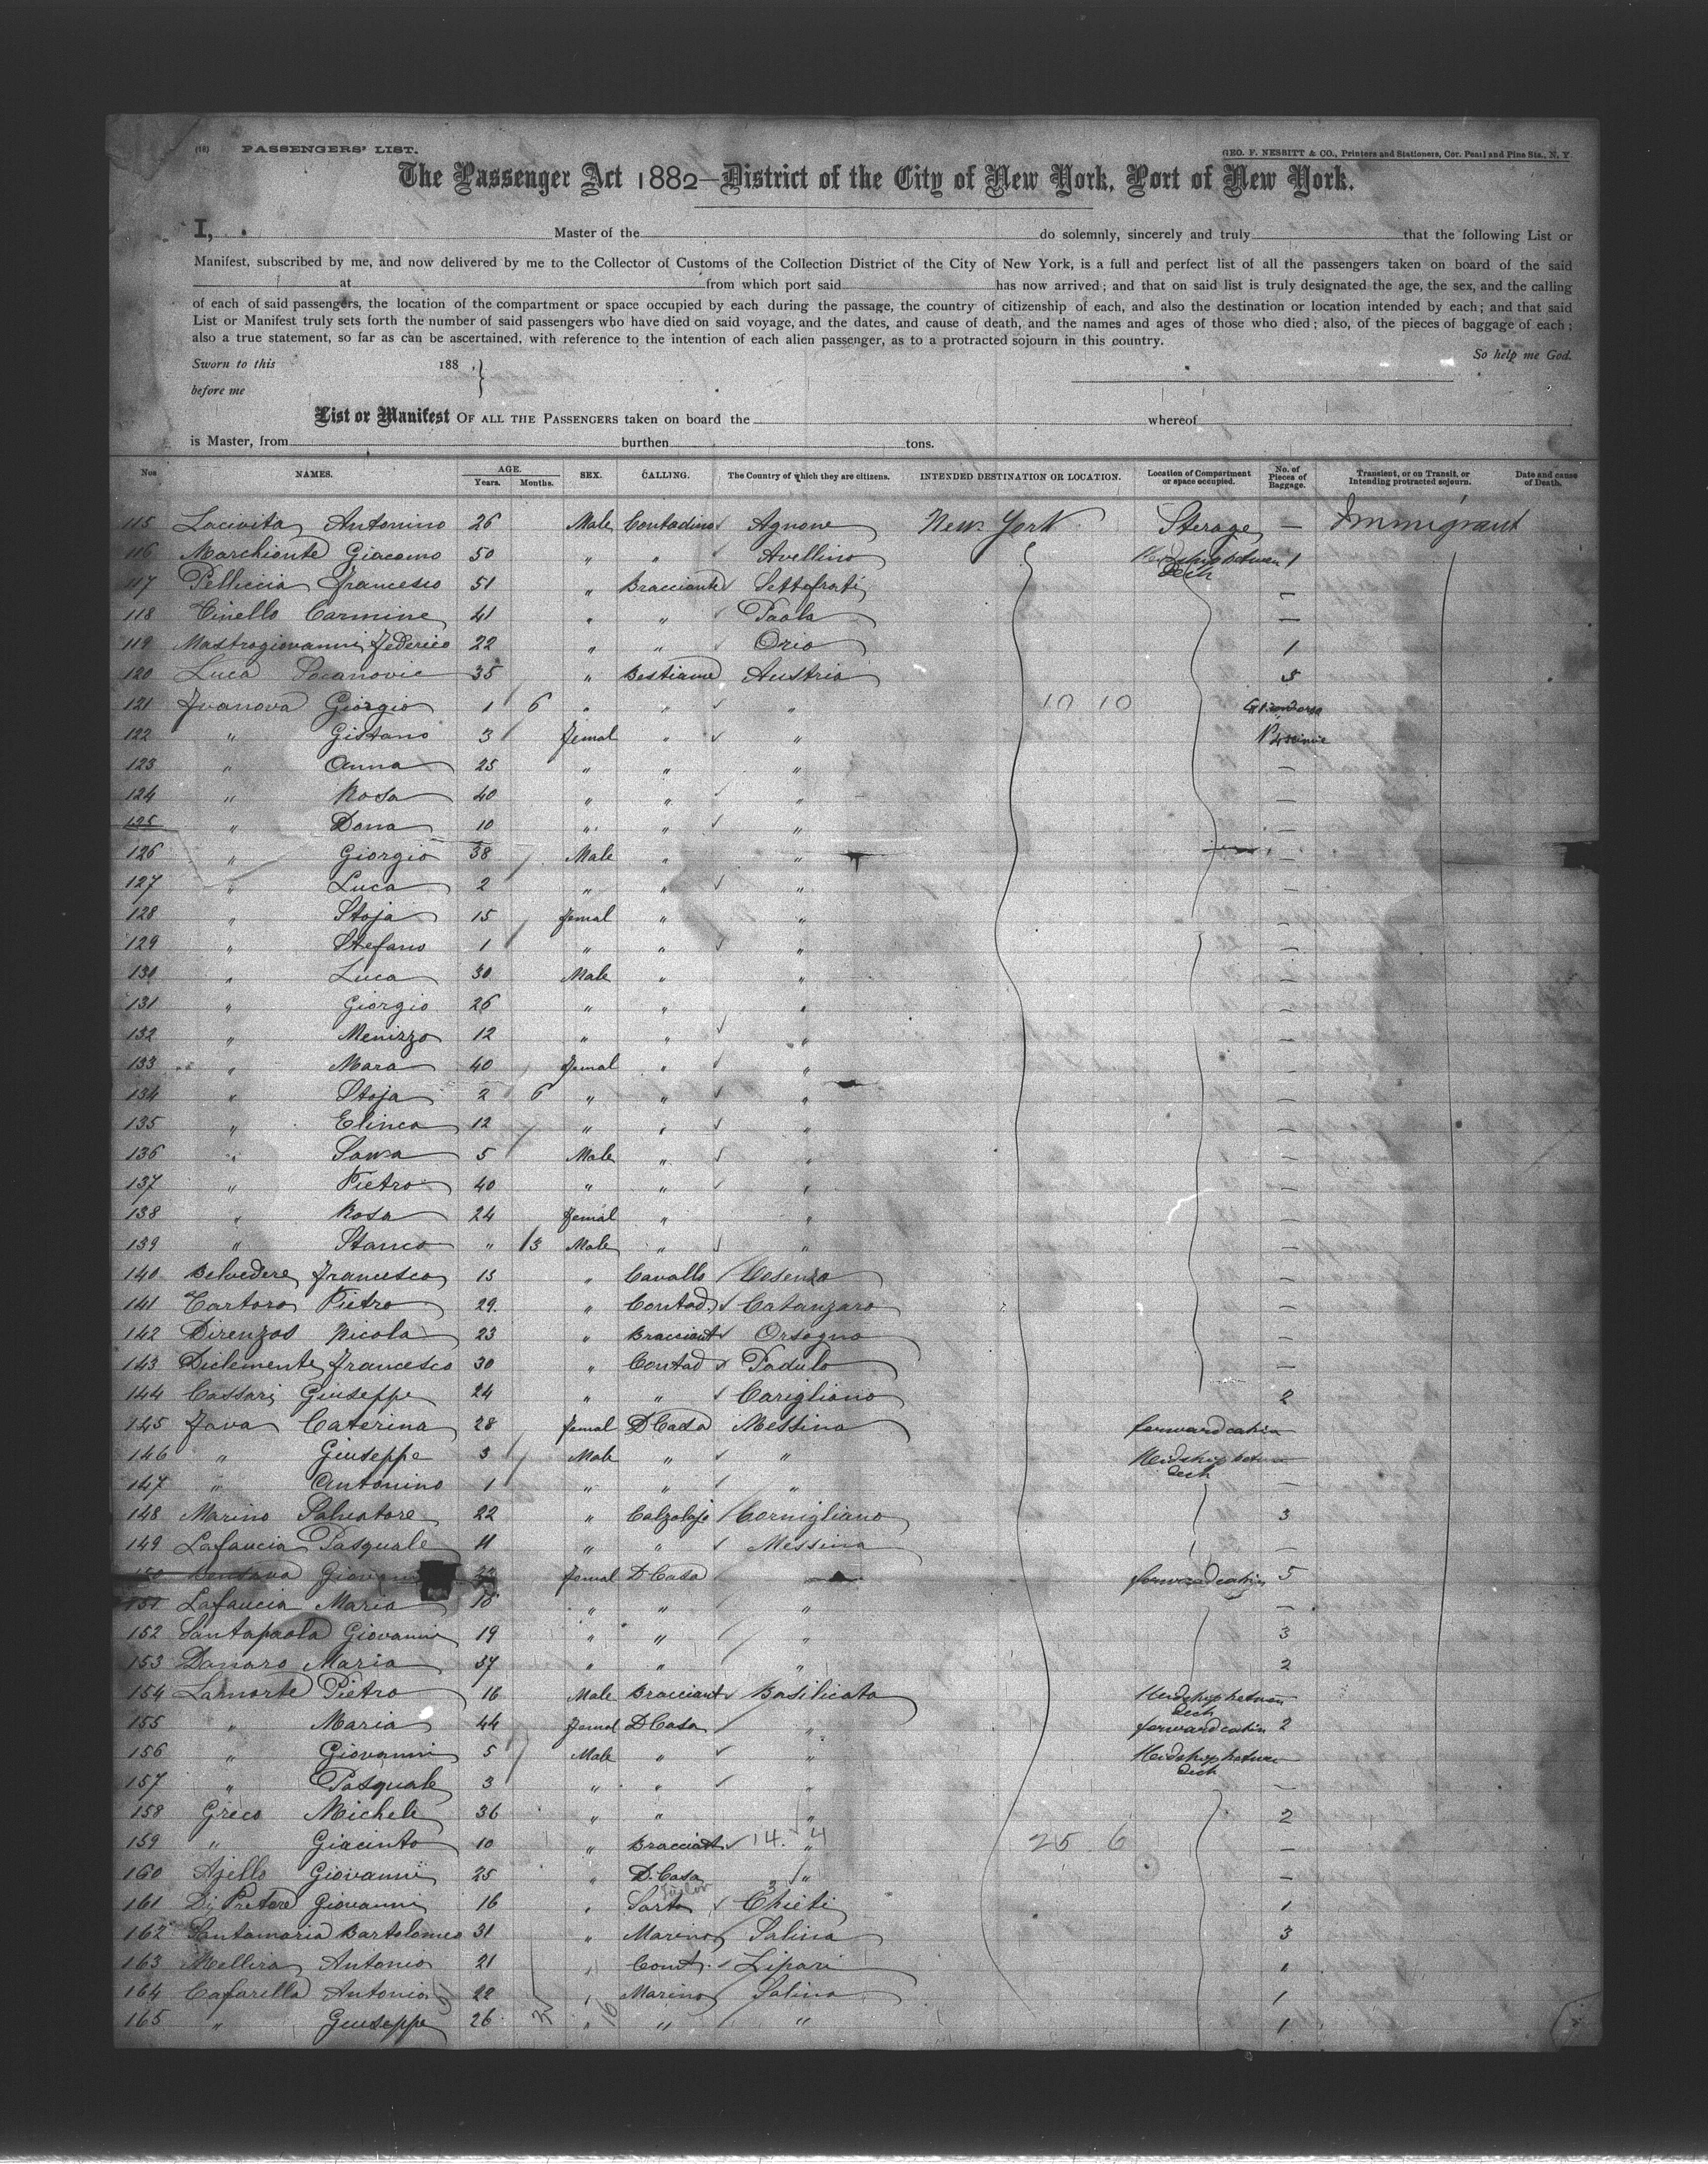 (18) PASSENGERS' LIST. GEO. F. NESBITT & CO., Printers and Stationers, Cor. Pearl and Pine Sts., N. Y.
The Passenger Act 1882—District of the City of New York, Port of New York.
I, Master of the do solemnly, sincerely and truly that the following List or
Manifest, subscribed by me, and now delivered by me to the Collector of Customs of the Collection District of the City of New York, is a full and perfect list of all the passengers taken on board of the said
at from which port said has now arrived; and that on said list is truly designated the age, the sex, and the calling
of each of said passengers, the location of the compartment or space occupied by each during the passage, the country of citizenship of each, and also the destination or location intended by each; and that said
List or Manifest truly sets forth the number of said passengers who have died on said voyage, and the dates, and cause of death, and the names and ages of those who died; also, of the pieces of baggage of each;
also a true statement, so far as can be ascertained, with reference to the intention of each alien passenger, as to a protracted sojourn in this country.
So help me God.
Sworn to this 188 .}
before me
List or Manifest OF ALL THE PASSENGERS taken on board the whereof
is Master, from burthen tons.
Nos NAMES. AGE. Years. Months. SEX. CALLING. The Country of which they are citizens. INTENDED DESTINATION OR LOCATION. Location of Compartment or space occupied. No. of Pieces of Baggage. Transient, or on Transit, or Intending protracted sojourn. Date and cause of Death.
115 Lacivita Antonino 26 Male Contadino Agnone New York Sterage — Immigrant
116 Marchionte Giacomo 50 " " Avellino 1
117 Pelliccia Francesco 51 " Bracciante Settefrati —
118 Cinello Carmine 41 " " Paola —
119 Mastrogiovanni Federico 22 " " Orio 1
120 Luca Socanovic 35 " Bestiame Austria 5
121 Ivanova Giorgio 1 6 " " " 10 10
122 " Gistano 3 Femal " "
123 " Anna 25 " " " —
124 " Rosa 40 " " " —
125 " Dona 10 " " " —
126 " Giorgio 38 Male " " —
127 " Luca 2 " " " —
128 " Stoja 15 Femal " " —
129 " Stefano 1 " " " —
130 " Luca 30 Male " " —
131 " Giorgio 26 " " " —
132 " Menizzo 12 " " " —
133 " Mara 40 Femal " " —
134 " Stoja 2 6 " " " —
135 " Elinca 12 " " " —
136 " Sawa 5 Male " " —
137 " Pietro 40 " " " —
138 " Rosa 24 Femal " " —
139 " Stanco " 13 Male " " —
140 Belvedere Francesco 13 " Cavallo Cosenza —
141 Cartoro Pietro 29 " Contad. Catanzaro —
142 Direnzos Nicola 23 " Bracciant Orsogna —
143 Diclemente Francesco 30 " Contad Padulo —
144 Cassari Giuseppe 24 " " Carigliano 2
145 Fava Caterina 28 Femal D Casa Messina forward cabin —
146 " Giuseppe 3 Male " " —
147 " Antonino 1 " " " —
148 Marino Salvatore 22 " Calzolajo Cornigliano 3
149 Lafaucia Pasquale 11 " " Messina —
150 Giovanni 22 Femal D Casa forward cabin 5
151 Lafaucia Maria 18 " " " —
152 Santapaola Giovanni 19 " " " 3
153 Danaro Maria 37 " " " 2
154 Lamorte Pietro 16 Male Bracciant Basilicata
155 " Maria 44 Femal D Casa " forward cabin 2
156 " Giovanni 5 Male " "
157 " Pasquale 3 " " " —
158 Greco Michele 36 " " " 2
159 " Giacinto 10 " Bracciant 14. 4 " 25 6 —
160 Ajello Giovanni 25 " D. Casa " —
161 Di Pretore Giovanni 16 " Sarto Tailor 3 Chieti 1
162 Santamaria Bartolomeo 31 " Marino Salina 3
163 Mellira Antonio 21 " Cont. Lipari "
164 Cafarella Antonio 22 " Marino Salina 1
165 " Giuseppe 26 " 16 " " 1